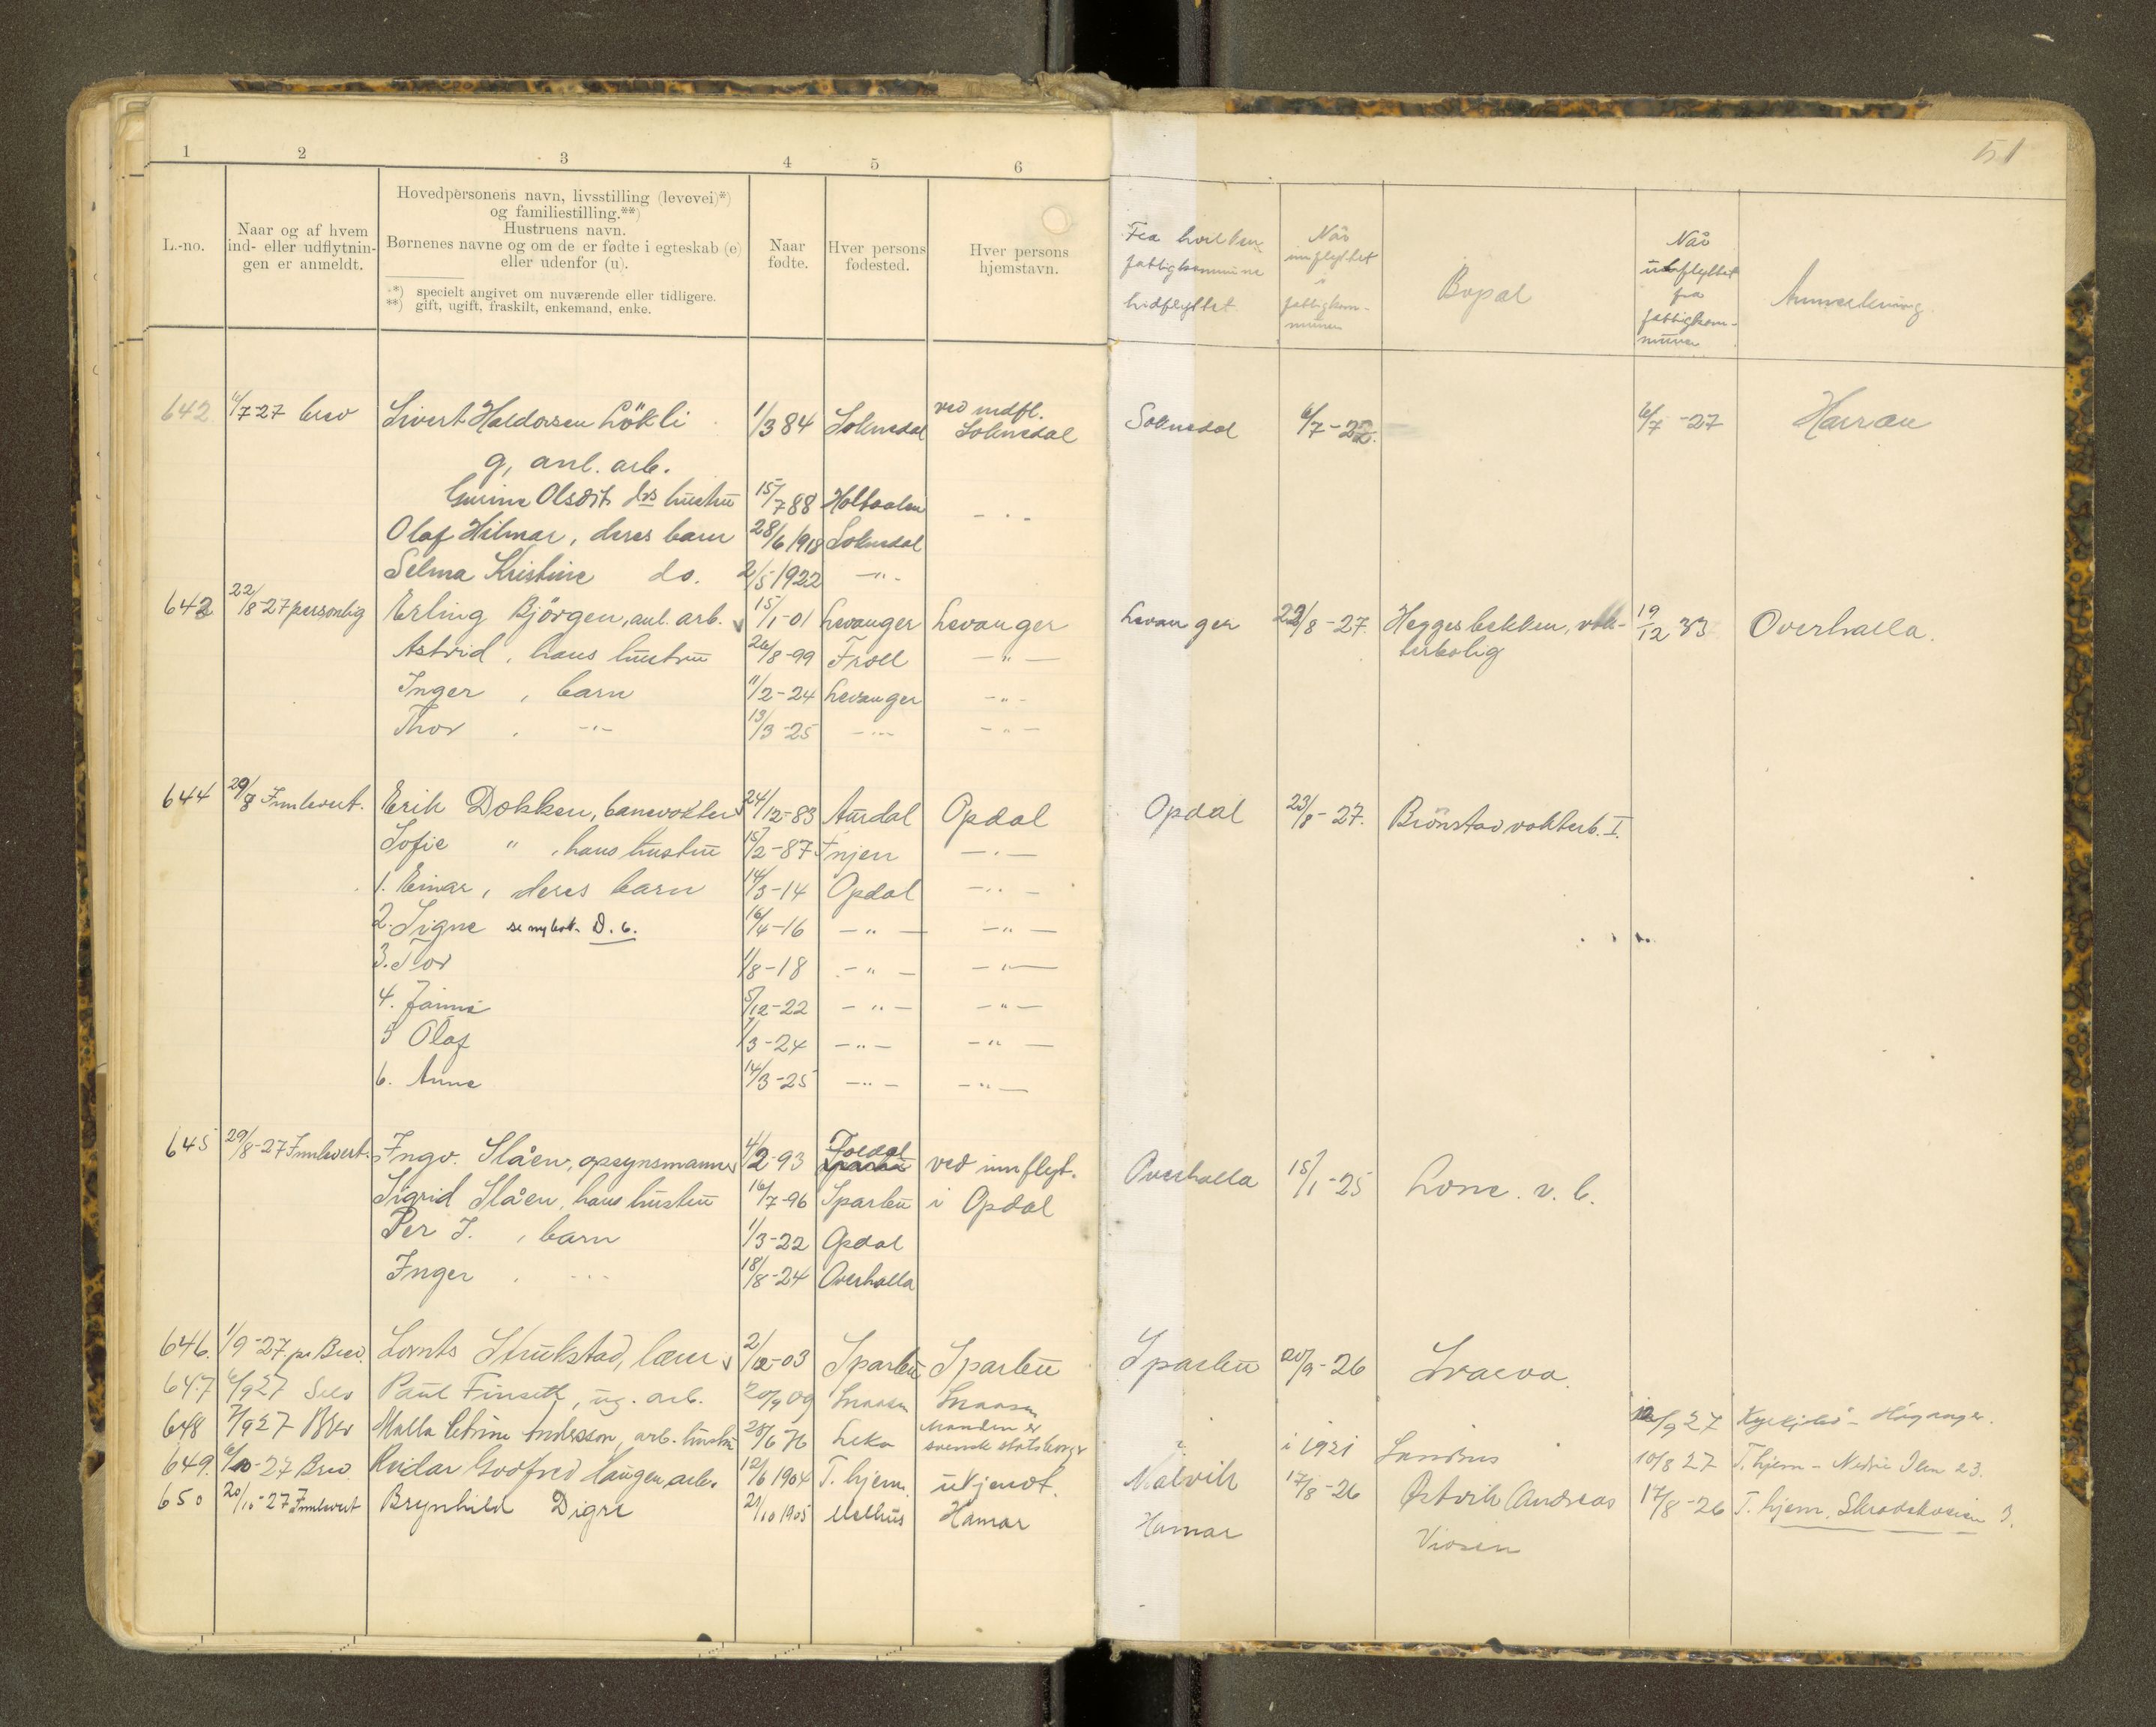 1 2 3 4 5 6
51
L.-no.
Naar og af hvem
ind- eller udflytnin-
gen er anmeldt.
Hovedpersonens navn, livsstilling (levevei)*)
og familiestilling.**)
Hustruens navn.
Børnenes navne og om de er fødte i egteskab (e)
eller udenfor (u).
*) specielt angivet om nuværende eller tidligere.
**) gift, ugift, fraskilt, enkemand, enke.
Naar
fødte.
Hver persons
fødested.
Hver persons
hjemstavn.
Fra hvilken
fattigkommune
hidflyttet.
Når
innflyttet
i
fattigkom-
munen
Bopæl
Når
utflyttet
fra
fattigkom-
munen
Anmerkning.
642 11/7-27 brev Sivert Haldorsen Løkli 1/3 84 Soknedal ved indfl. Soknedal Soknedal 6/7-27. 6/7-27 Harran
g, anl. arb.
Gurine Olsdt. ds hustru 15/7 88 Holtaalen - " -
Olaf Hilmar, deres barn 28/6 1918 Soknedal
Selma Kristine do. 2/5 1922 - " -
642 22/8-27 personlig Erling Bjørgen, anl. arb. 15/1-01 Levanger Levanger Levanger 22/8-27. Heggesbekken, vok- 19/12 33 Overhalla.
terbolig
Astrid, hans hustru 26/8-99 Frol - " -
Inger, barn 11/2-24 Levanger - " -
Thor, - " - 13/3-25 - " - - " -
644 29/8 Innlevert. Erik Dokken, banevokter 24/12-83 Aurdal Opdal Opdal 23/8-27. Brønstad vokterb. I.
Sofie " , hans hustru 15/2-87 - " -
1. Einar, deres barn 14/3-14 Opdal - " -
2. Signe se ny bok. D. 6. 16/4-16 - " - - " -
3. Tor 1/8-18 - " - - " -
4. 5/12-22 - " - - " -
5 Olaf 1/3-24 - " - - " -
6. Anne 14/3-25 - " - - " -
645 29/8-27 Innlevert. Ingv. Slåen, opsynsmann 4/2-93 Foldal ved innflyt. Overhalla 15/1-25 Lone. v. b.
Sigrid Slåen, hans hustru 16/7-96 Sparbu i Opdal
Per I. , barn 1/3-22 Opdal
Inger , - " - 18/8-24 Overhalla
646. 1/9-27. pr Brev. Lornts Strukstad, lærer 2/12-03 Sparbu Sparbu Sparbu 20/9-26
647 6/9 27 Selv Paul Finseth, ug. arb. 20/9 09 Snaasen Snaasen
648 7/9 27 Brev Malla Petrine Andersson, arb. hustru 28/6 76 Leka Manden er svensk statsborger ? i 1921 12/9 27 Høyanger.
649. 6/10-27 Brev Reidar Godfred Haugen, arb. 12/6 1904 T. hjem. ukjendt. Malvik 17/8-26 10/8 27 T. hjem - Nedre Ilen 23.
650 20/10-27 Innlevert Brynhild Digre 21/10 1905 Melhus Hamar Hamar Østvik Andreas 17/8-26 T. hjem,